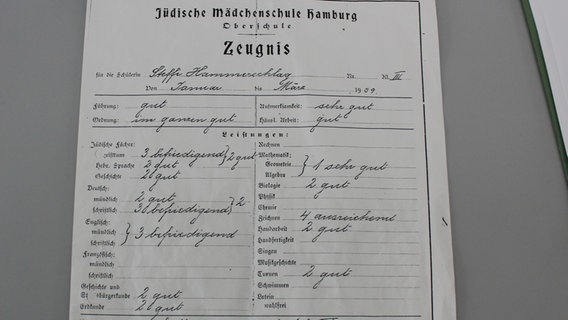 Jüdische Mädchenschule Hamburg
Oberschule
Zeugnis
für die Schülerin Steffi Hammerschlag Nr. Kl. III
Von Januar bis März 1939.
Führung: gut Aufmerksamkeit: sehr gut
Ordnung: im ganzen gut Häusl. Arbeit: gut
Leistungen:
Jüdische Fächer:
3 befriedigend } 2 gut
Hebr. Sprache 2 gut
Geschichte 2 gut
Deutsch:
mündlich 2 gut
schriftlich 3 befriedigend } 2
Englisch:
mündlich
schriftlich } 3 befriedigend
Französisch:
mündlich
schriftlich
Geschichte und
Staatsbürgerkunde 2 gut
Erdkunde 2 gut
Rechnen
Mathematik:
Geometrie
Algebra } 1 sehr gut
Biologie 2 gut
Physik
Chemie
Zeichnen 4 ausreichend
Handarbeit 2 gut
Handfertigkeit
Singen
Musikgeschichte
Turnen 2 gut
Schwimmen
Latein
wahlfrei